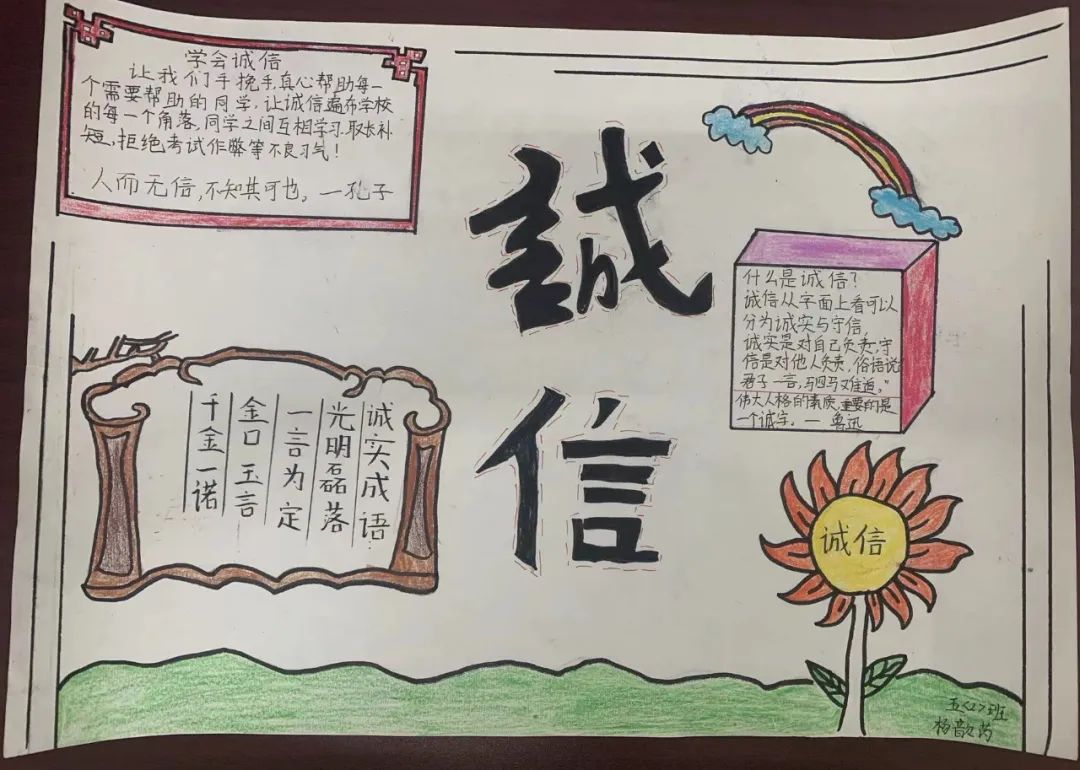 学会诚信
让我们手挽手,真心帮助每一
个需要帮助的同学,让诚信遍布学校
的每一个角落,同学之间互相学习.取长补
短,拒绝考试作弊等不良习气!
人而无信,不知其可也。—孔子
誠
信
什么是诚信?
诚信从字面上看可以
分为诚实与守信,
诚实是对自己负责,守
信是对他人负责,俗语说
君子一言,驷马难追。"
伟大人格的素质,重要的是
一个诚字。— 鲁迅
诚实成语
光明磊落
一言为定
金口玉言
千金一诺
诚信
五<2>班
杨